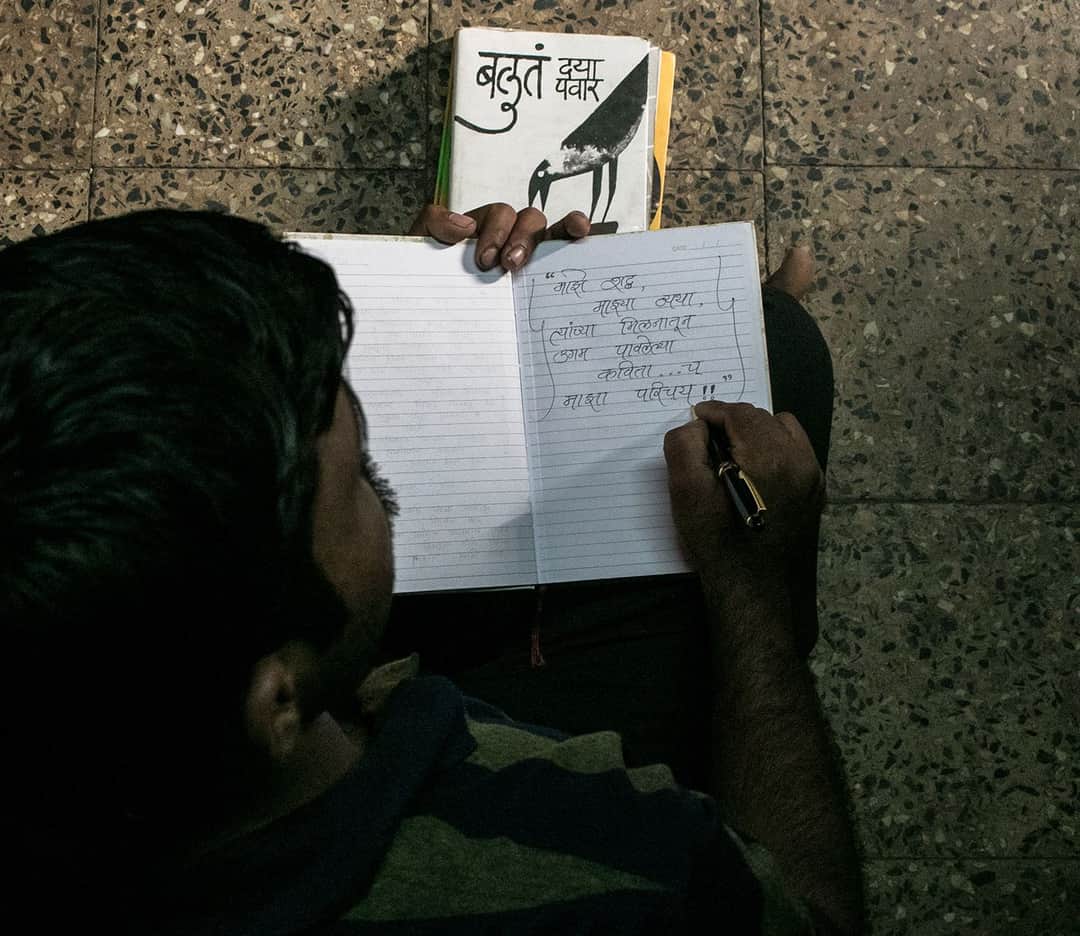 बलुतं
दया
पवार
DATE / /
“ माझे शब्द,
माझ्या व्यथा,
त्यांच्या मिलनातून
उगम पावलेल्या
कविता...च
माझा परिचय !! ”